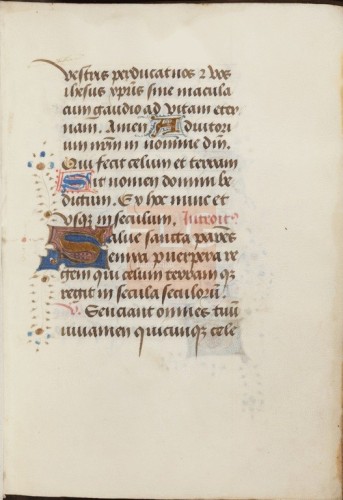 vestris perducat uos 2 vos
ihesus xp̄rus sine macula
cum gaudio ad vitam eter
nam. Amen Adiutori
um nr̄m in nomine dn̄i.
Qui fecit celum et terram
Sit nomen domini be
dictum. Ex hoc nunc et
vsqꝫ in seculum. Introit9
Salue sancta parēs
enixa puerpera re
gem qui celum terram qꝫ
regit in secula seculorū.
v. Senciant omnes tuū
iuuamen quicunqꝫ cele